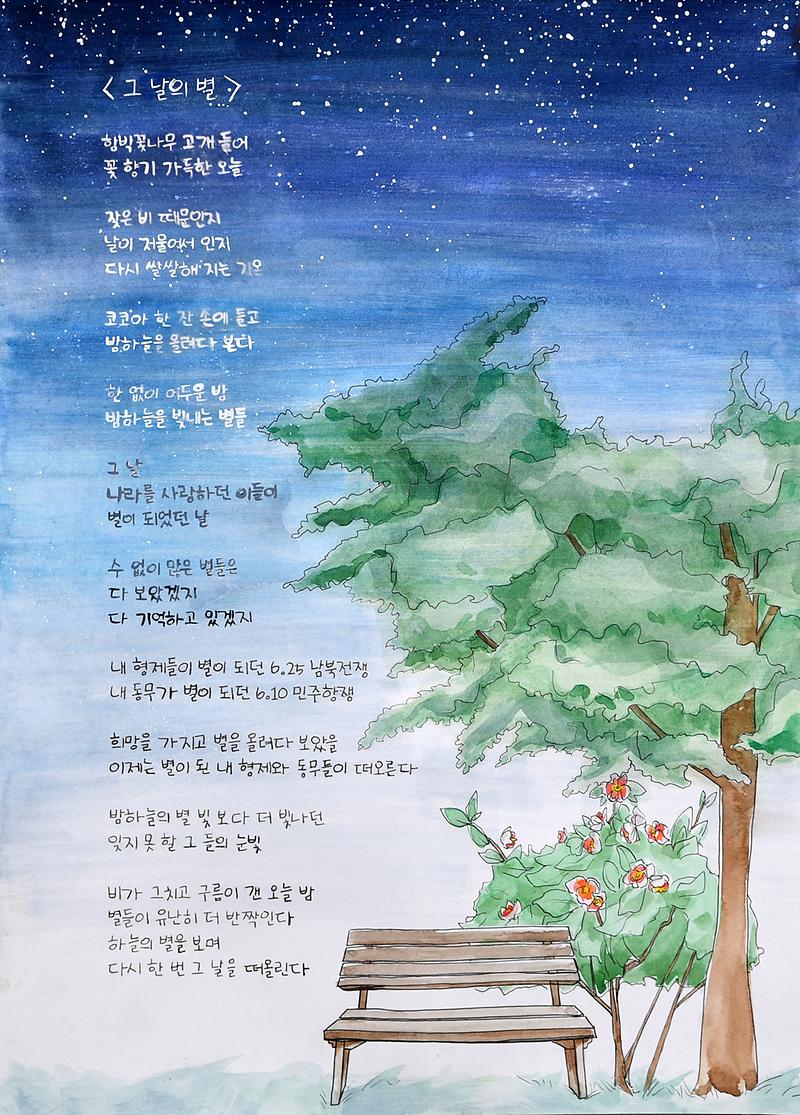 < 그 날의 별 >
함박꽃나무 고개 들어
꽃 향기 가득한 오늘
잦은 비 때문인지
날이 저물어서 인지
다시 쌀쌀해 지는 기온
코코아 한 잔 손에 들고
밤하늘을 올려다 본다
한 없이 어두운 밤
밤하늘을 빛내는 별들
그 날
나라를 사랑하던 이들이
별이 되었던 날
수 없이 많은 별들은
다 보았겠지
다 기억하고 있겠지
내 형제들이 별이 되던 6.25 남북전쟁
내 동무가 별이 되던 6.10 민주항쟁
희망을 가지고 별을 올려다 보았을
이제는 별이 된 내 형제와 동무들이 떠오른다
밤하늘의 별 빛 보다 더 빛나던
잊지 못 할 그 들의 눈빛
비가 그치고 구름이 갠 오늘 밤
별들이 유난히 더 반짝인다
하늘의 별을 보며
다시 한 번 그 날을 떠올린다